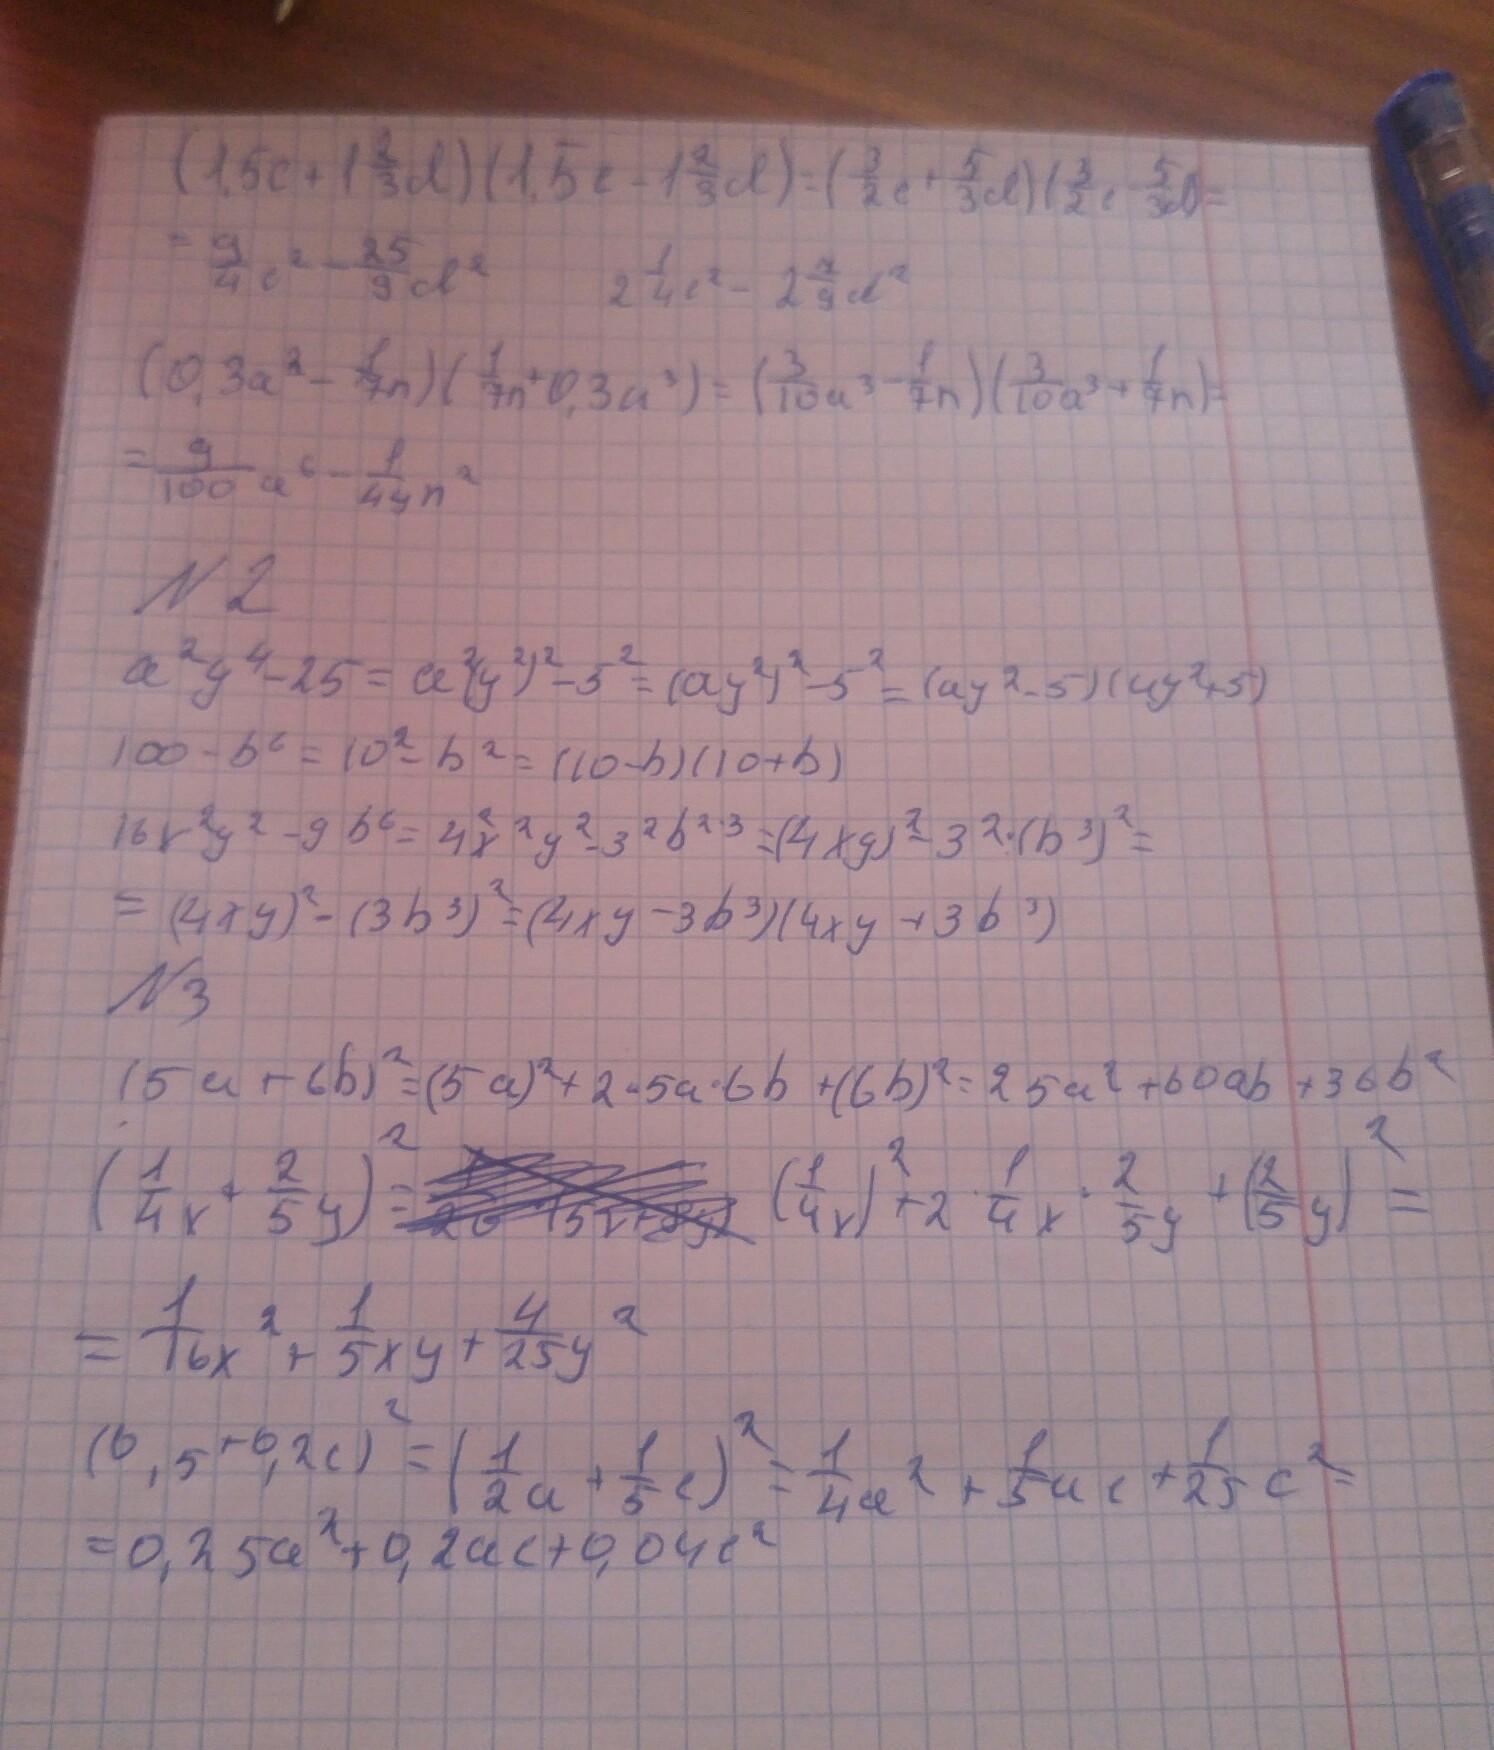 (1,5c+1 2/3d)(1,5c-1 2/3d)=(3/2c+5/3d)(3/2c-5/3d)=
=9/4c²-25/9d² 2 1/4c²-2 7/9d²
(0,3a³-1/7n)(1/7n+0,3a³)=(3/10a³-1/7n)(3/10a³+1/7n)=
=9/100a⁶-1/49n²
N2
a²y⁴-25=a²(y²)²-5²=(ay²)²-5²=(ay²-5)(ay²+5)
100-b⁶=10²-b²=(10-b)(10+b)
16x²y²-9b⁶=4²x²y²-3²b²·³=(4xy)²-3²·(b³)²=
=(4xy)²-(3b³)²=(4xy-3b³)(4xy+3b³)
N3
(5a+6b)²=(5a)²+2·5a·6b+(6b)²=25a²+60ab+36b²
(1/4x+2/5y)²= (1/4x)²+2·1/4x·2/5y+(2/5y)²=
=1/16x²+1/5xy+4/25y²
(0,5+0,2c)²=(1/2a+1/5c)²=1/4a²+1/5ac+1/25c²=
=0,25a²+0,2ac+0,04c²